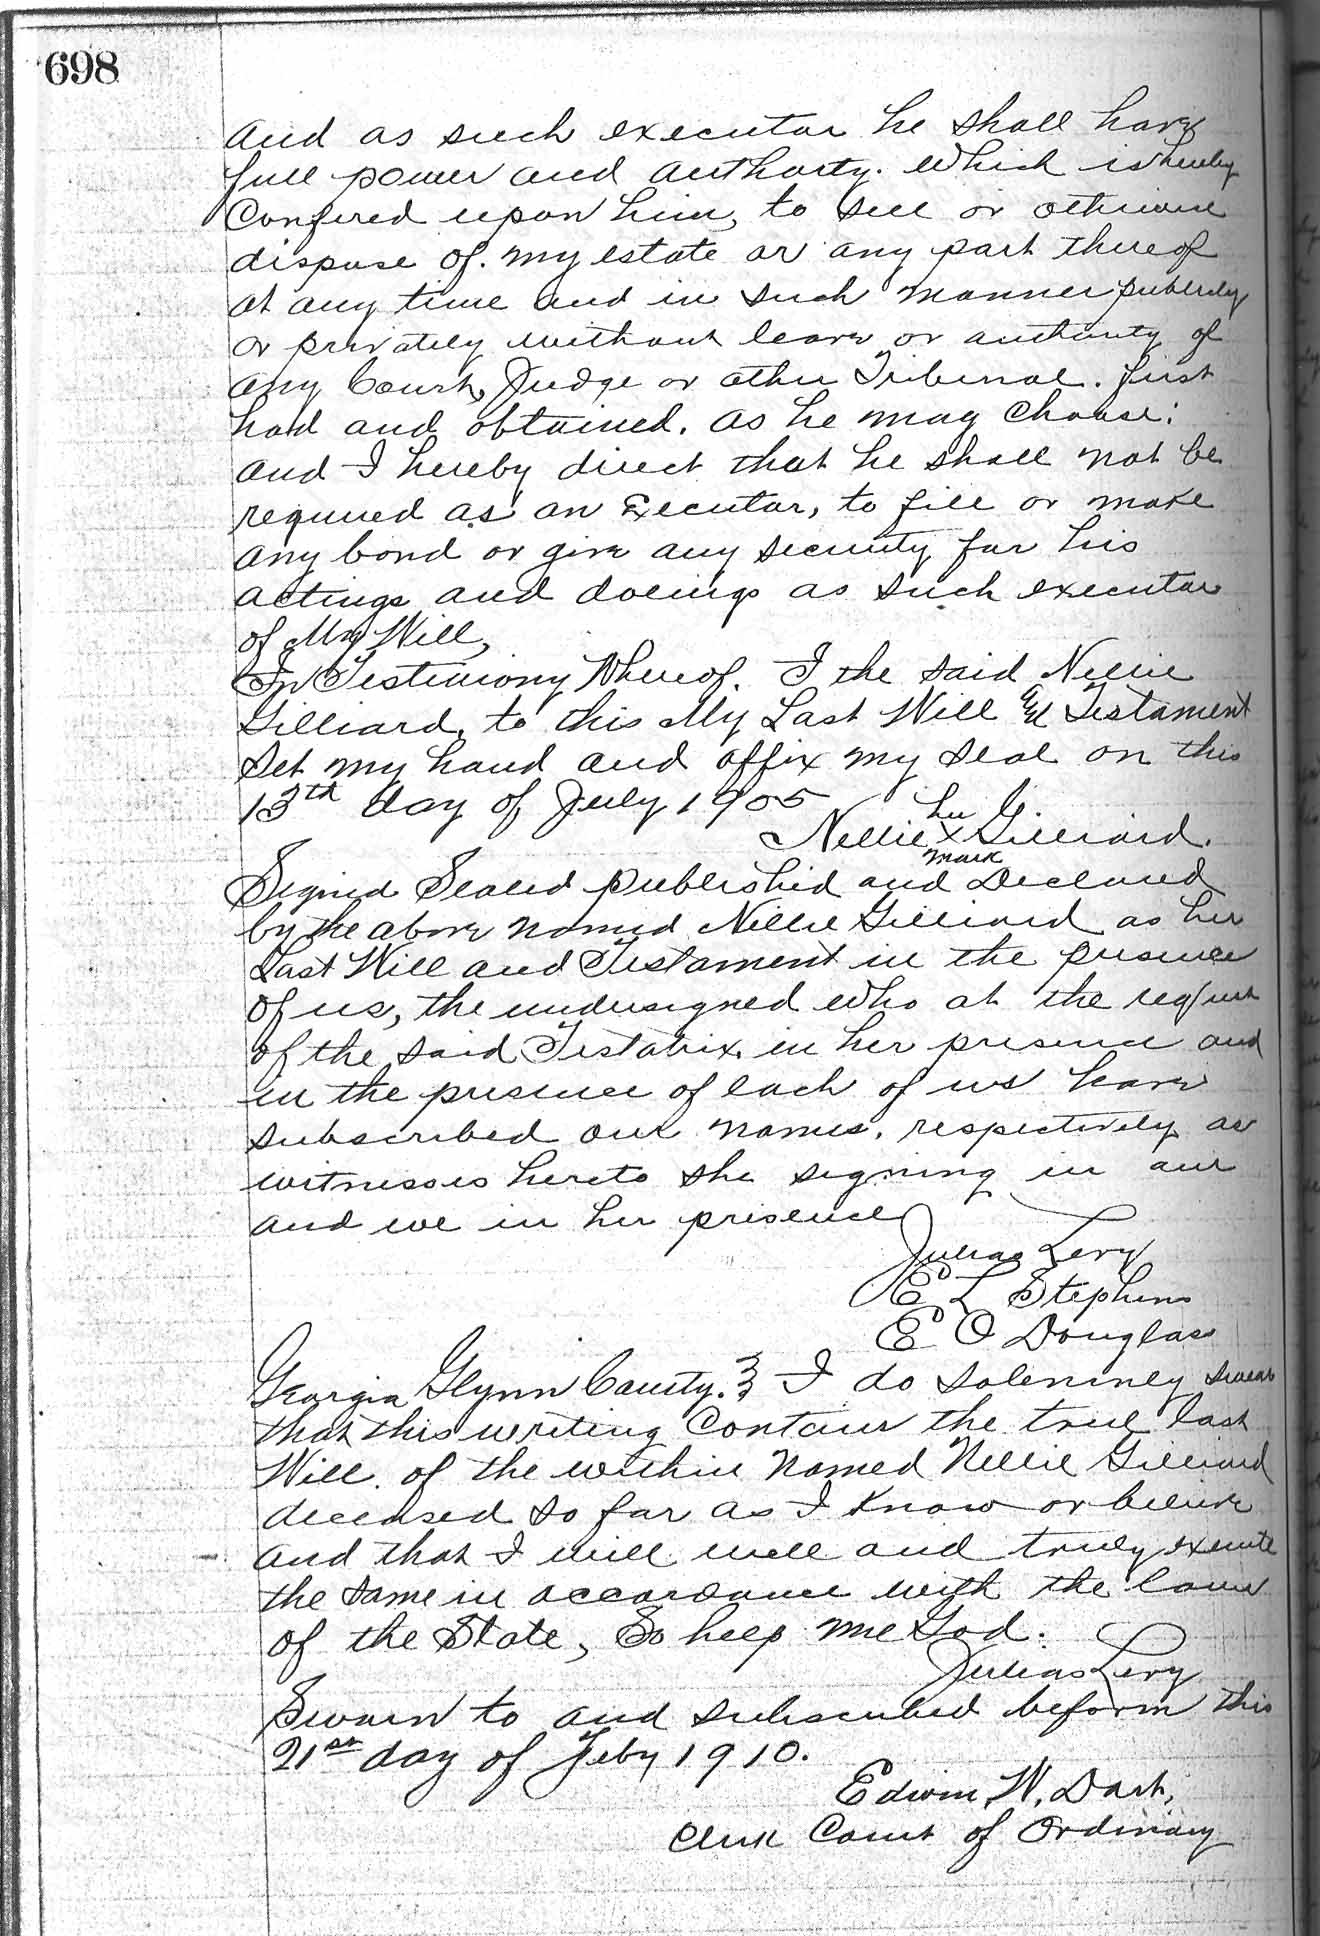 698
and as such executor he shall have
full power and authorty. which is hereby
Confered upon him, to sell or otherwise
dispose of. my estate or any part thereof
at any time and in such manner publicly
or privately without leave or authority of
any Court, Judge or other Tribunal. first
had and obtained. as he may choose:
and I hereby direct that he shall not be
required as an Executor, to fill or make
any bond or give any security for his
actings and doeings as such executor
of My Will,
In Testimony Whereof. I the said Nellie
Gilliard, to this My Last Will and Testament
Set my hand and affix my seal on this
13th day of July 1905
her
Nellie X Gilliard.
mark
Signed Sealed published and Declared
by the above named Nellie Gilliard as her
Last Will and Testament in the presence
of us, the undersigned who at the request
of the said Testatrix, in her presence and
in the presence of each of us have
subscribed our names. respectively as
witnesses hereto she signing in our
and we in her presence
Julias Levy
E L Stephens
E O Douglas
Georgia Glynn County. } I do solemnley swear
that this writing Contains the true last
Will. of the within Named Nellie Gilliard
deceased so far as I Know or believe
and that I will well and truly execute
the same in accordance with the laws
of the State, So help me God.
Julias Levy
Sworn to and subscribed before me this
21st day of Feby 1910.
Edwin W. Dart,
Clerk Court of Ordinary